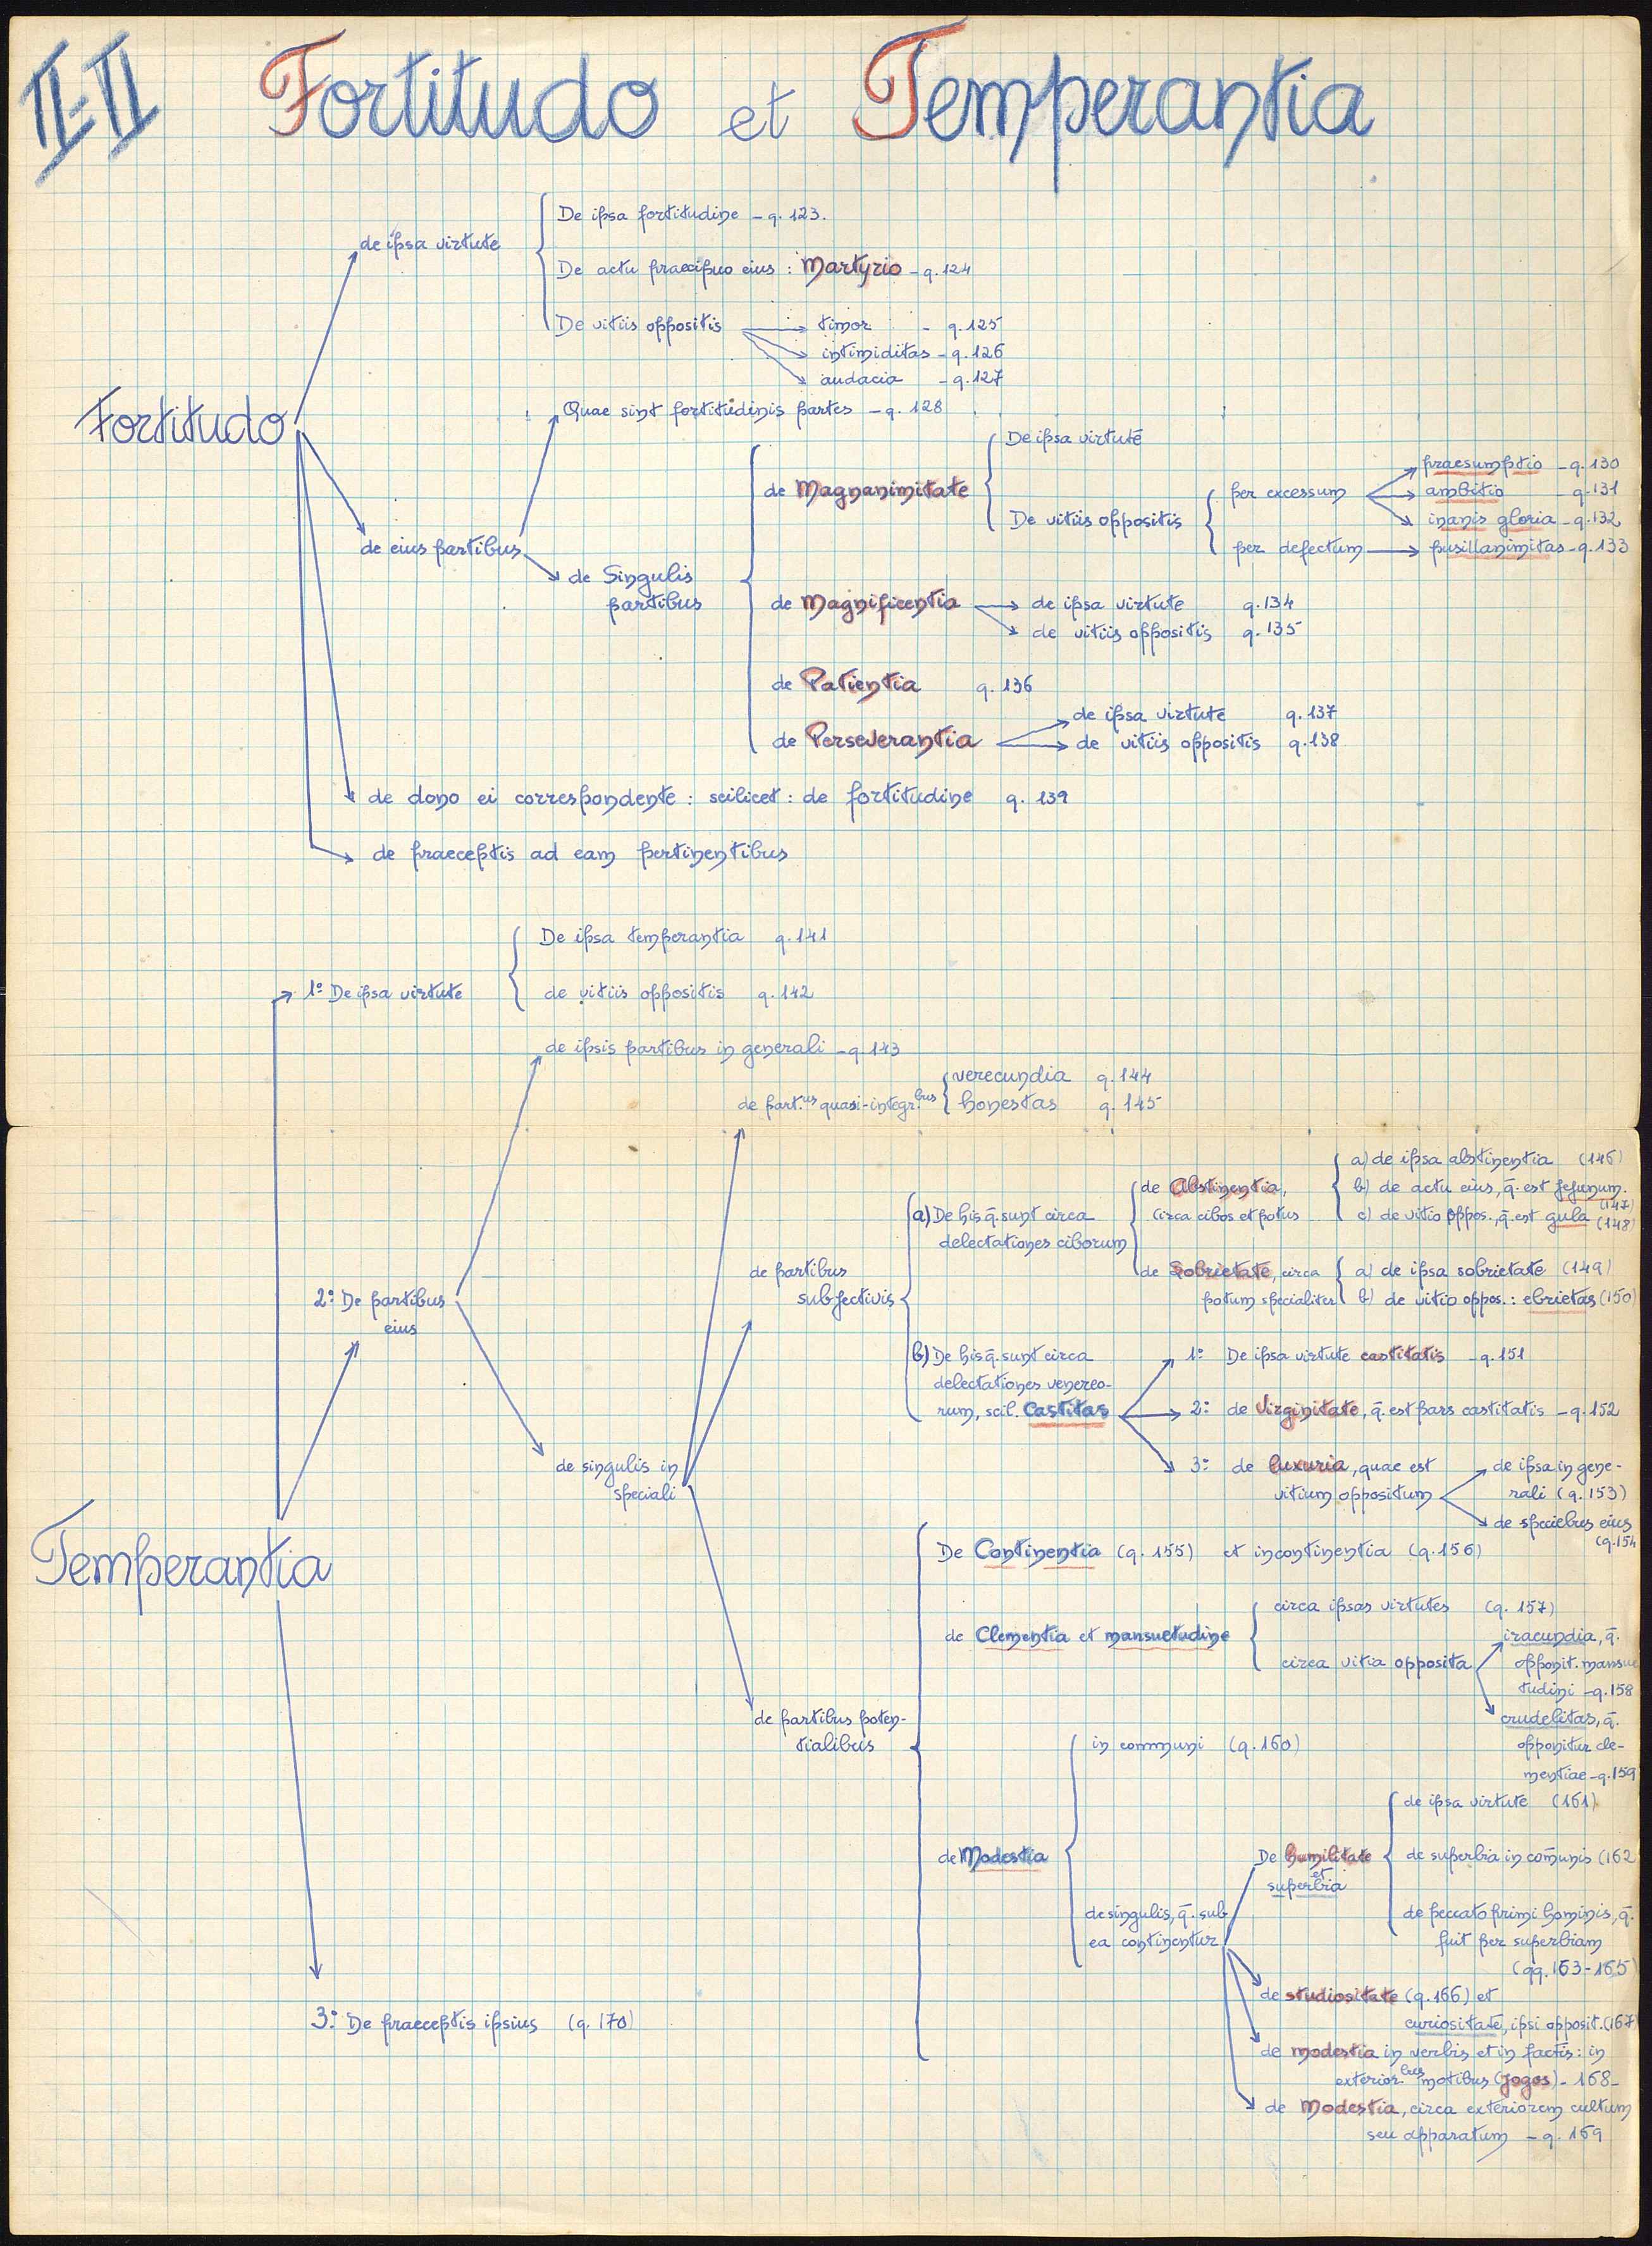 II-II Fortitudo et Temperantia
De ipsa fortitudine - q. 123.
de ipsa virtute
De actu praecipuo eius : Martyrio - q. 124
De vitiis oppositis
timor - q. 125
intimiditas - q. 126
audacia - q. 127
Fortitudo
Quae sint fortitudinis partes - q. 128
de eius partibus
de Singulis
partibus
de Magnanimitate
De ipsa virtute
De vitiis oppositis
per excessum
praesumptio - q. 130
ambitio - q. 131
inanis gloria - q. 132
per defectum
pusillanimitas - q. 133
de Magnificentia
de ipsa virtute q. 134
de vitiis oppositis q. 135
de Patientia q. 136
de Perseverantia
de ipsa virtute q. 137
de vitiis oppositis q. 138
de dono ei correspondente : scilicet : de fortitudine q. 139
de praeceptis ad eam pertinentibus
De ipsa temperantia q. 141
1º De ipsa virtute
de vitiis oppositis q. 142
de ipsis partibus in generali - q. 143
de part.us quasi-integr.bus
verecundia q. 144
honestas q. 145
2º De partibus
eius
de partibus
subjectivis
a) De his q̄. sunt circa
delectationes ciborum
de Abstinentia,
circa cibos et potus
a) de ipsa abstinentia (146)
b) de actu eius, q̄. est jejunum.
(147)
c) de vitio oppos., q̄. est gula (148)
de Sobrietate, circa
potum specialiter
a) de ipsa sobrietate (149)
b) de vitio oppos. : ebrietas (150)
b) De his q̄. sunt circa
delectationes venereo-
rum, scil. Castitas
1º De ipsa virtute castitatis - q. 151
2º de Virginitate, q̄. est pars castitatis - q. 152
3º de luxuria, quae est
vitium oppositum
de ipsa in gene-
rali (q. 153)
de speciebus eius
(q. 154
de singulis in
speciali
Temperantia
De Continentia (q. 155) et incontinentia (q. 156)
de Clementia et mansuetudine
circa ipsas virtutes (q. 157)
circa vitia opposita
iracundia, q̄.
opponit. mansue
tudini - q. 158
crudelitas, q̄.
opponitur cle-
mentiae - q. 159
de partibus poten-
tialibus
de Modestia
in communi (q. 160)
de singulis, q̄. sub
ea continentur
De humilitate
et
superbia
de ipsa virtute (161)
de superbia in com̄unis (162
de peccato primi hominis, q̄.
fuit per superbiam
(qq. 163-165)
de studiositate (q. 166) et
curiositate, ipsi opposit. (167)
de modestia in verbis et in factis : in
exterior.bus motibus (jogos) - 168 -
de Modestia, circa exteriorem cultum
seu apparatum - q. 169
3º De praeceptis ipsius (q. 170)